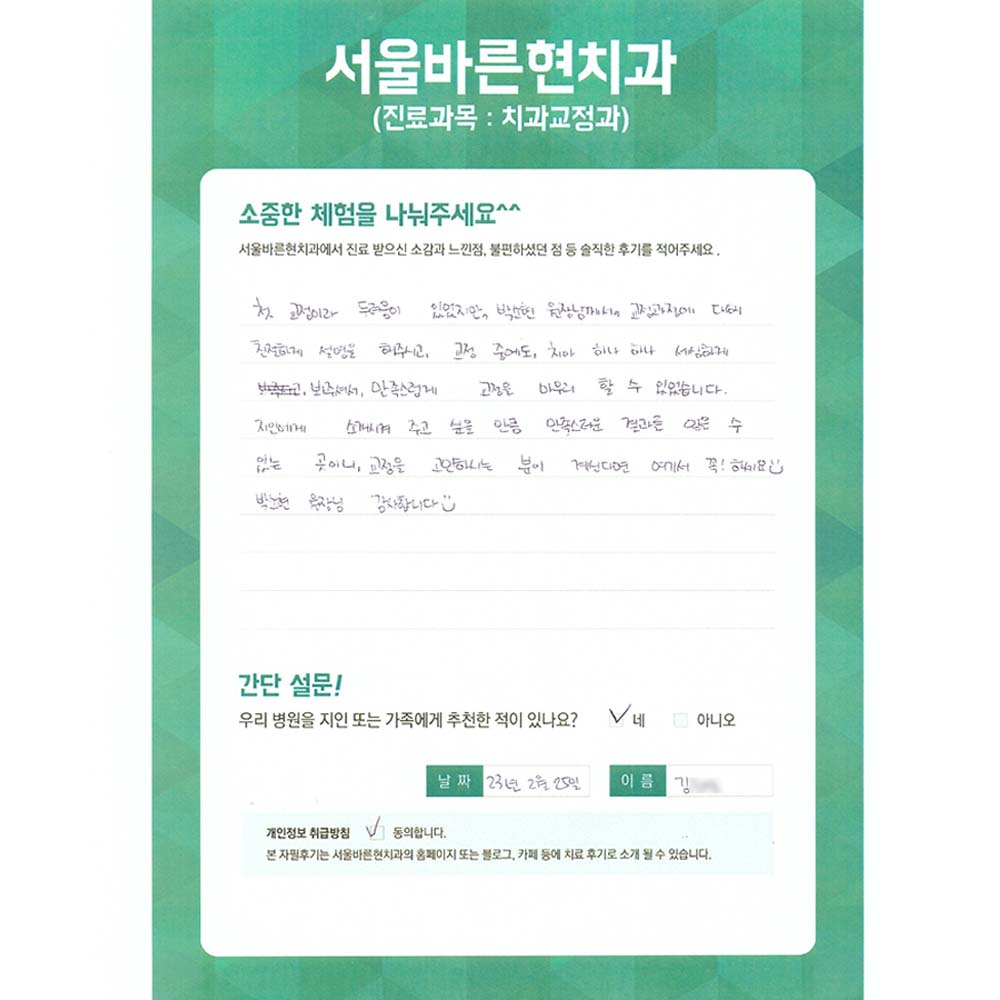 서울바른현치과
(진료과목 : 치과교정과)
소중한 체험을 나눠주세요^^
서울바른현치과에서 진료 받으신 소감과 느낀점, 불편하셨던 점 등 솔직한 후기를 적어주세요.
첫 교정이라 두려움이 있었지만, 박소현 원장님께서 교정과정에 대해
친절하게 설명을 해주시고, 교정 중에도, 치아 하나 하나 세심하게
보주셔서, 만족스럽게 교정을 마무리 할 수 있었습니다.
지인에게 소개시켜 주고 싶을 만큼 만족스러운 결과를 얻을 수
있는 곳이니, 교정을 고민하시는 분이 계신다면 여기서 꼭! 하세요
박소현 원장님 감사합니다
간단 설문!
우리 병원을 지인 또는 가족에게 추천한 적이 있나요? 네 아니오
날짜 23년 2월 25일 이름 김
개인정보 취급방침 동의합니다.
본 자필후기는 서울바른현치과의 홈페이지 또는 블로그, 카페 등에 치료 후기로 소개 될 수 있습니다.